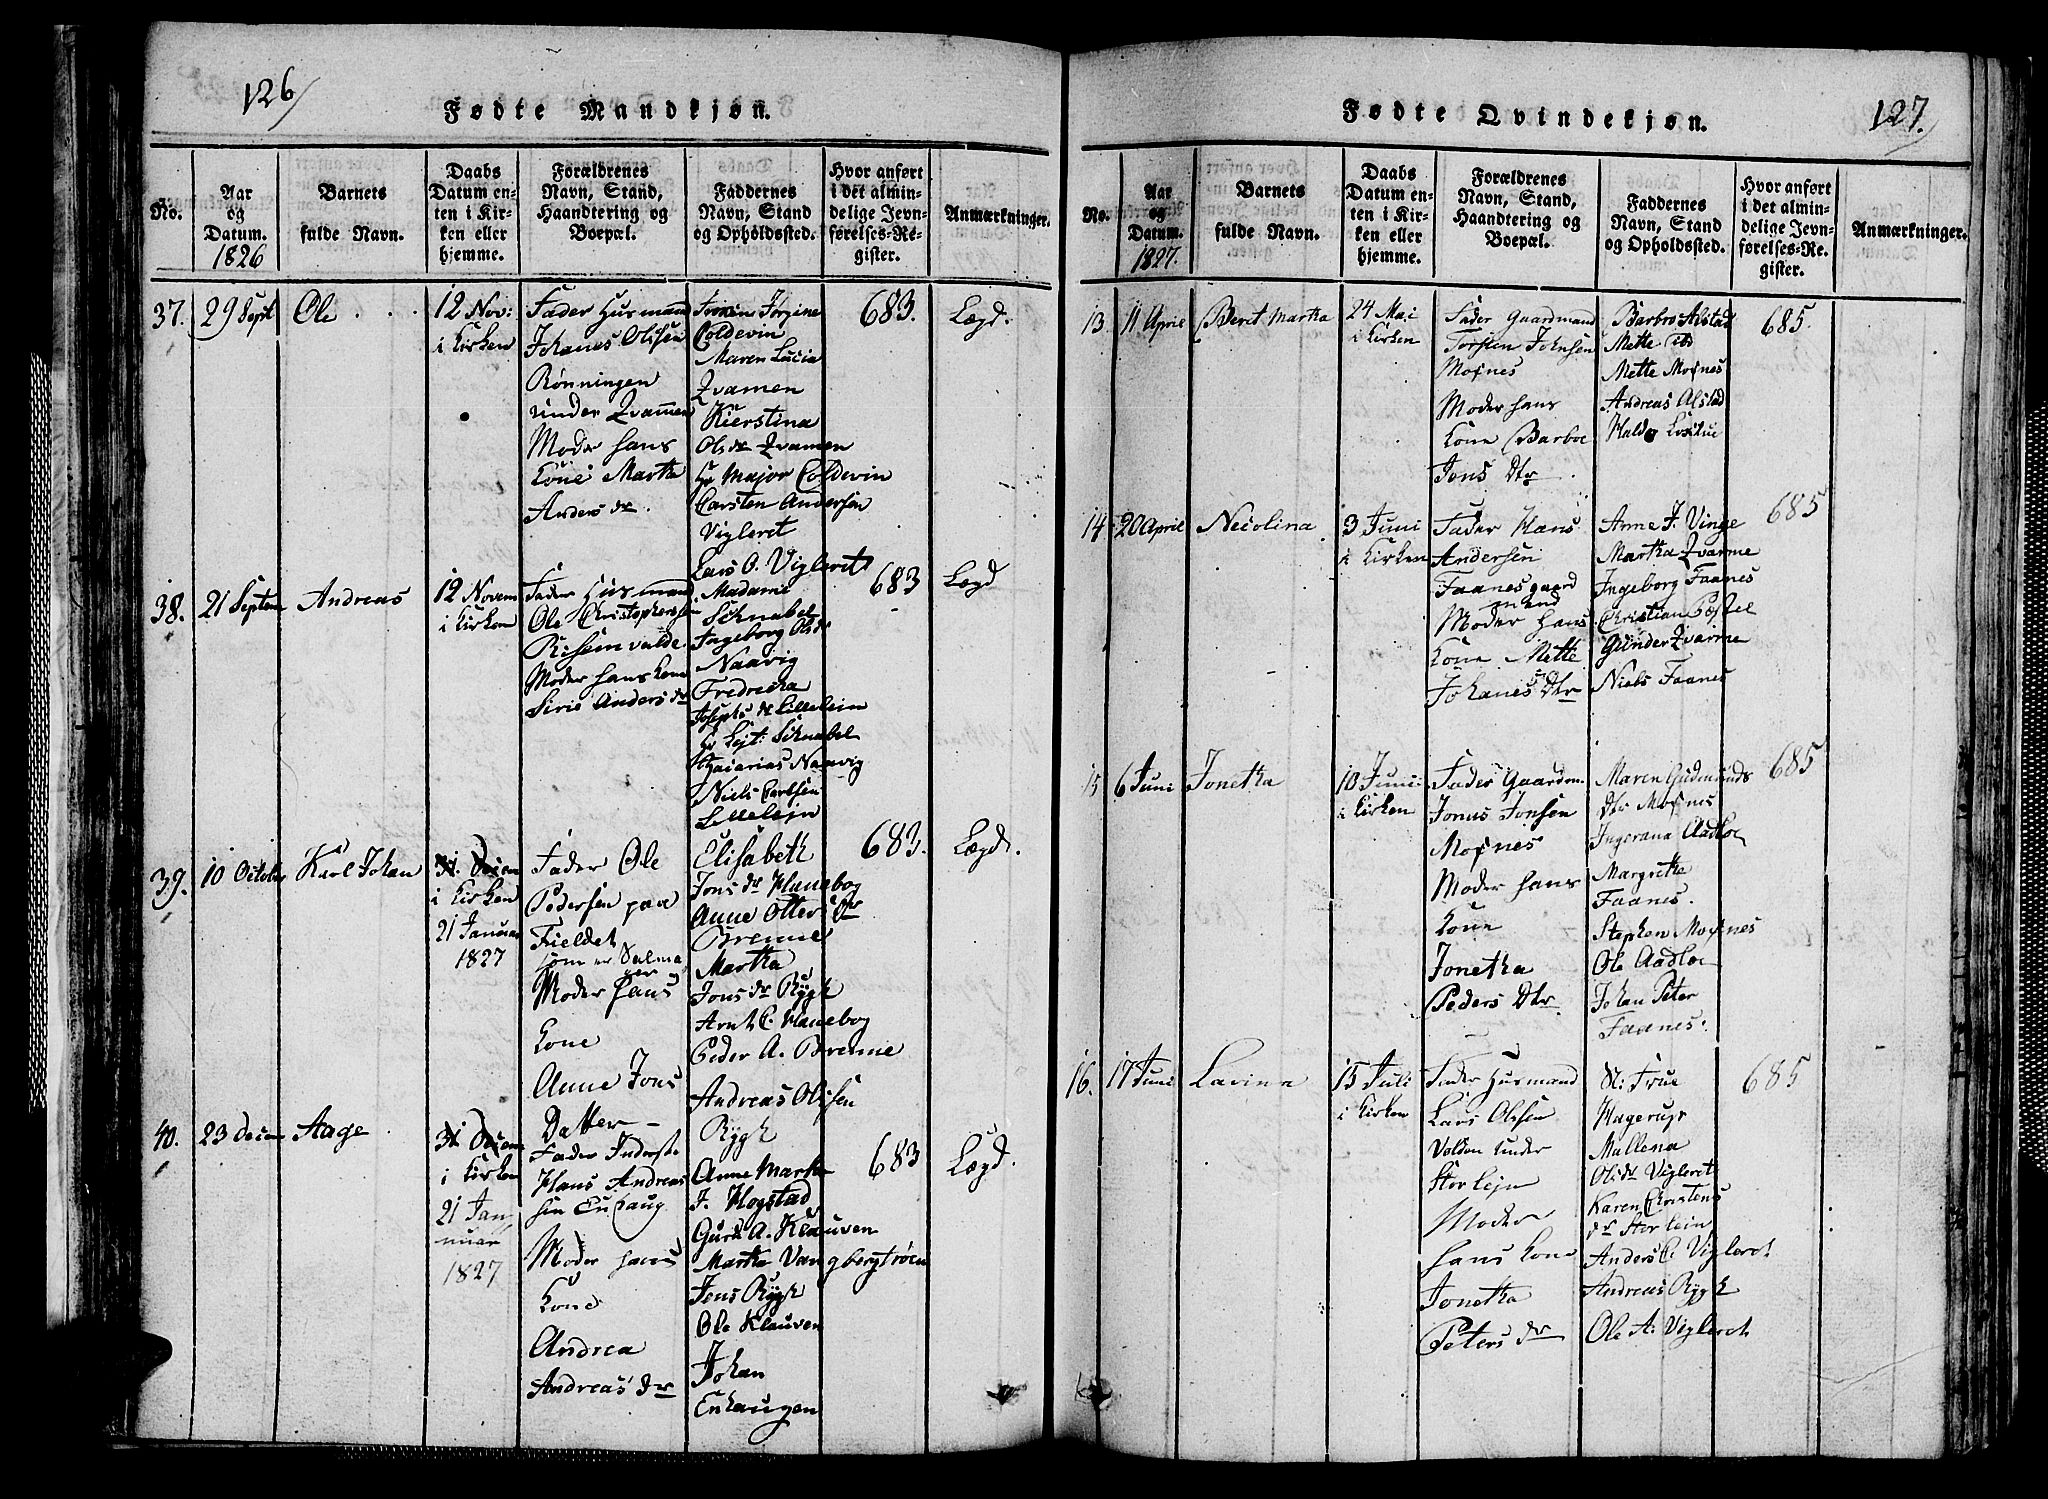 126/
Fødte Mandkjøn.
No.
Aar og Datum. 1826
Barnets fulde Navn.
Daabs Datum enten i Kirken eller hjemme.
Forældrenes Navn, Stand, Haandtering og Boepæl.
Faddernes Navn, Stand og Opholdssted.
Hvor anført i det almindelige Jevnførelses-Register.
Anmærkninger.
37.
29 Sept
Ole
12 Nov:
i Kirken
Fader Husmand
Johanes Olisen
Rønningen
under Qvamen
Moder hans
Kone Martha
Anders dr.
Jørgine
Coldevin
Maren Lucia
Qvamen
Kierstina
Ols dr Qvamen
Hr Major Coldevin
Carsten Andersen
Vigleret
Lars O. Vigleret
683.
Lægd.
38.
21 Septem
Andreas
12 Novem
i Kirken
Fader Husmand
Ole Christophersen
Risemvalde
Moder hans Kone
Siric Anders dr
Madame
Schnabel
Ingeborg Ols dr
Naavig
Fredricha
Josephs dr Lillelein
Hr Lejt: Schnabel
Zacarias Naavig
Niels Carlsen
Lillelejn
683
Lægd
39.
10 Octobr
Karl Johan
31. Decem
i Kirken
21 Januar
1827
Fader Ole
Pedersen paa
Fieldet
som er Salma
ger
Moder hans
Kone
Anne Jons
Datter
Elisabeth
Jons dr Hanebog
Anne Otter dr
Brenne
Martha
Jons dr Rygh
Arnt C. Hanebog
Peder A. Brenne
Andreas Olisen
Rygh
683.
Lægd.
40.
23 Decem
Aage
31 Decem
i Kirken
21 Jan
nuar
1827
Fader Inderste
Hans Andreas
sen Enhaug
Moder hans
Kone
Andrea
Andreas' dr
Anne Martha
J. Hogstad
Guru A. Klauven
Martha Vangbergtrøen
Jens Rygh
Ole Klauven
Johan
Enhaugen
683
Lægd.
127.
Fødte Qvindekjøn.
No.
Aar og Datum. 1827.
Barnets fulde Navn.
Daabs Datum enten i Kirken eller hjemme.
Forældrenes Navn, Stand, Haandtering og Boepæl.
Faddernes Navn, Stand og Opholdssted.
Hvor anført i det almindelige Jevnførelses-Register.
Anmærkninger.
13.
11 April
Berit Martha
24 Mai
i Kirken
Fader Gaardmand
Torsten Johnsen
Mosnes
Moder hans
Kone Barboe
Jons Dtr
Barbro Alstad
Mette ibd
Mette Mosnes
Andreas Alstad
685.
14
20 April
Nicolina
3 Juni
i Kirken
Fader Hans
Andersen
Faanes gaard
mand
Moder hans
Kone Mette
Johanes Dtr
Anne J. Vinge
Martha Qvarme
Ingeborg Faanes
Christian Postel
Gunder Qvarme
Niels Faanes
685
15
6 Juni
Jonetha
10 Juni
i Kirken
Fader Gaardm
Jonus Jonsen
Mosnes
Moder hans
Kone
Jonetha
Peders Dtr
Maren Gudmunds
Dtr Mosnes
Ingerana Aadloe
Margrethe
Faanes.
Stephen Mosnes
Ole Aadloe
Johan Peter
Faanes.
685
16.
17 Juni
Lavina
15 Juli
i Kirken
Fader Husmand
Lars Olisen
Volden under
Storlejn
Moder
hans Kone
Jonetha
Peters dr
St: Frue
Hagerups
Mallena
Ols dr Vigleret
Karen Chrstens
dr Storlein
Anders C. Vigleret
Andreas Rygh
Ole A: Vigleret
685